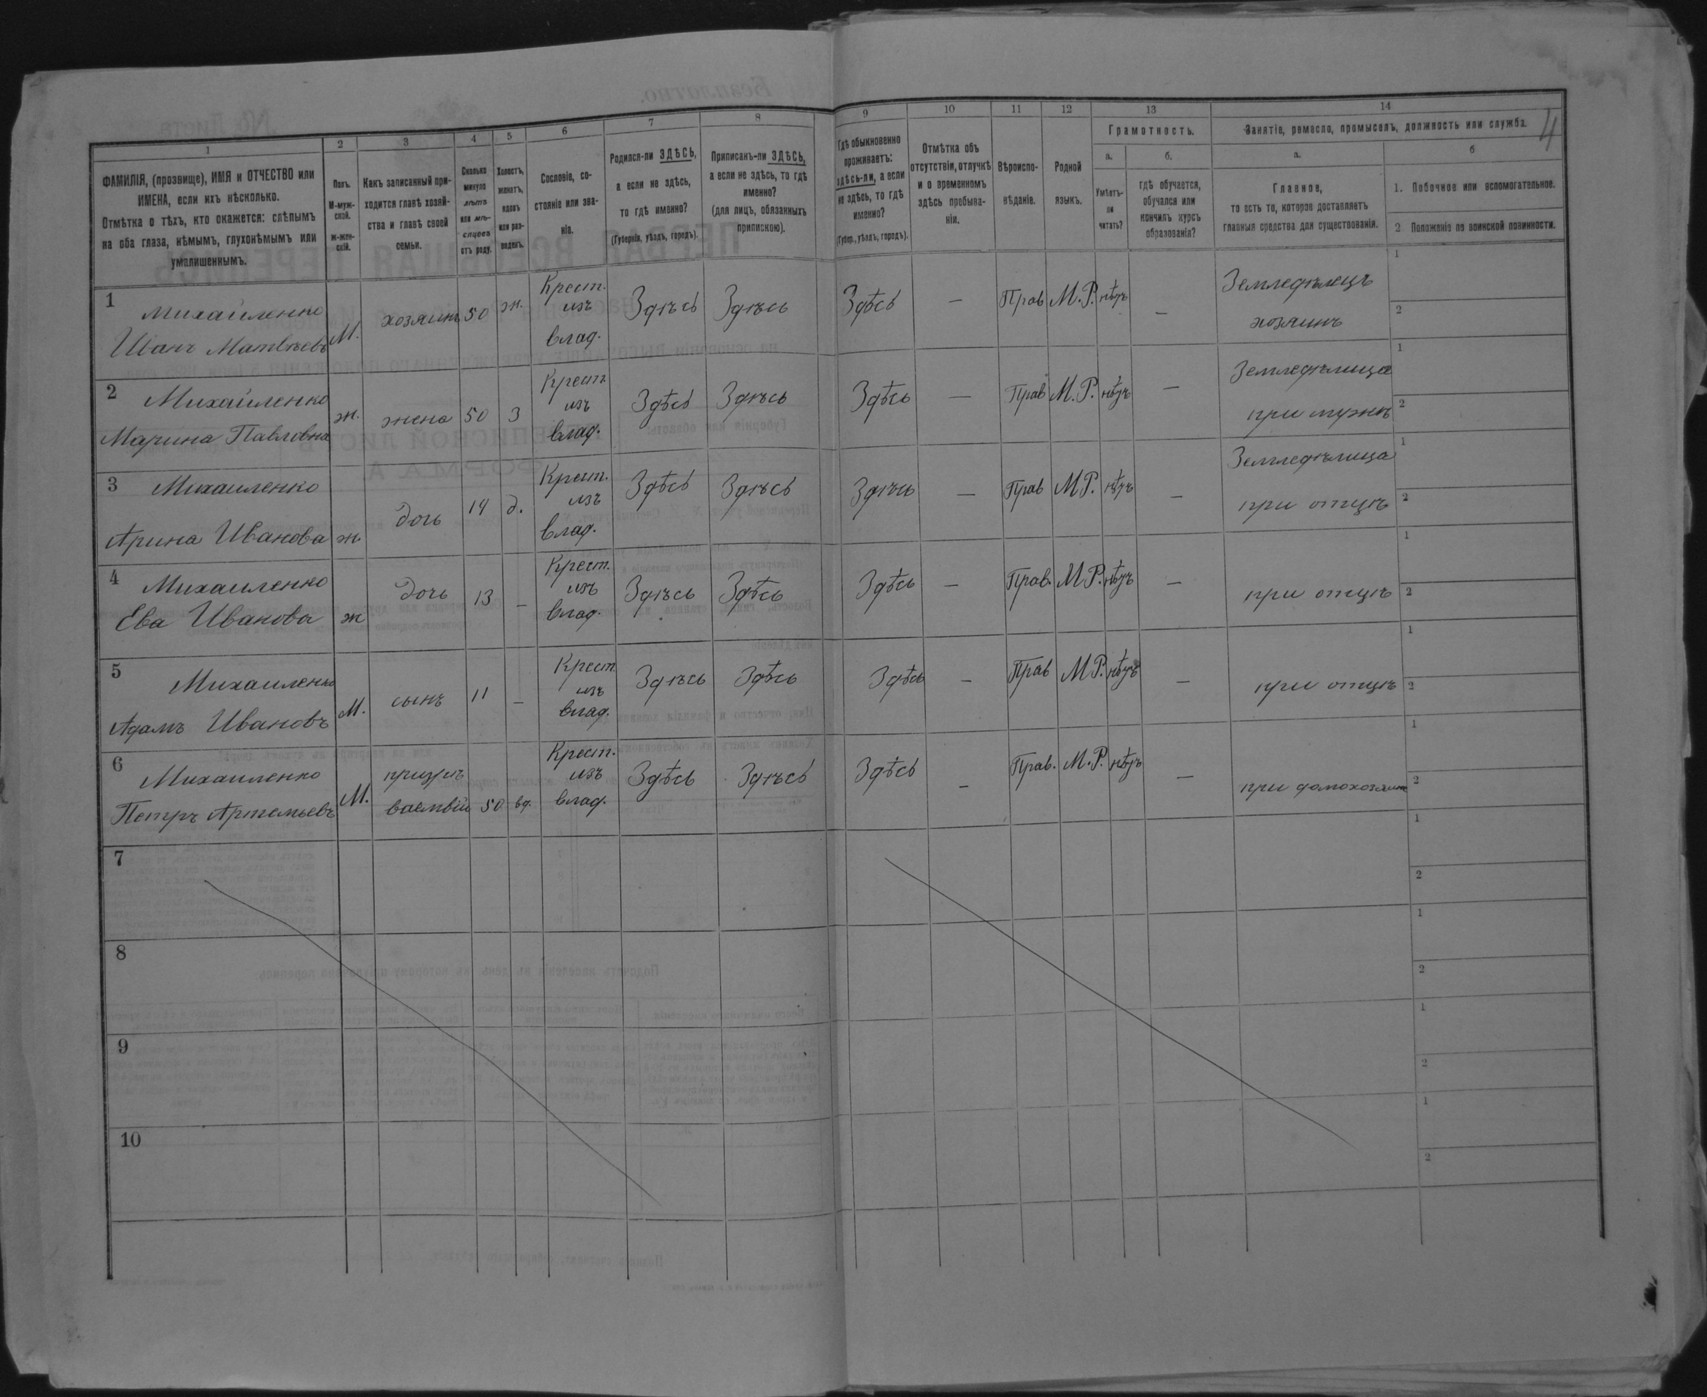 1
2
3
4
5
6
7
8
9
10
11
12
13
14
4
ФАМИЛІЯ, (прозвище), ИМЯ и ОТЧЕСТВО или
ИМЕНА, если ихъ нѣсколько.
Отмѣтка о тѣхъ, кто окажется: слѣпымъ
на оба глаза, нѣмымъ, глухонѣмымъ или
умалишеннымъ.
Полъ.
М-муж-
ской.
Ж-жен-
скій.
Какъ записанный при-
ходится главѣ хозяй-
ства и главѣ своей
семьи.
Сколько
минуло
лѣтъ
или мѣ-
сяцевъ
отъ роду.
Холостъ,
женатъ,
вдовъ
или раз-
веденъ.
Сословіе, со-
стояніе или зва-
ніе.
Родился-ли ЗДѢСЬ,
а если не здѣсь,
то гдѣ именно?
(Губернія, уѣздъ, городъ).
Приписанъ-ли ЗДѢСЬ,
а если не здѣсь, то гдѣ
именно?
(для лицъ, обязанныхъ
припискою).
Гдѣ обыкновенно
проживаетъ:
здѣсь-ли, а если
не здѣсь, то гдѣ
именно?
(Губер., уѣздъ, городъ).
Отмѣтка объ
отсутствіи, отлучкѣ
и о временномъ
здѣсь пребыва-
ніи.
Вѣроиспо-
вѣданіе.
Родной
языкъ.
Грамотность.
а.
Умѣетъ-
ли
читать?
б.
гдѣ обучается,
обучался или
кончилъ курсъ
образованія?
Занятіе, ремесло, промыселъ, должность или служба.
а.
Главное,
то есть то, которое доставляетъ
главныя средства для существованія.
б
1. Побочное или вспомогательное.
2 Положеніе по воинской повинности.
1
Михайленко
Иванъ Матвѣевъ
М.
хозяинъ
50
ж.
Крест.
изъ
влад.
Здѣсь
Здѣсь
Здѣсь
—
Прав
М.Р.
нѣтъ
—
Земледѣлецъ
хозяинъ
1
2
2
Михайленко
Марина Павловна
ж.
жена
50
З
Крест
изъ
влад.
Здѣсь
Здѣсь
Здѣсь
—
Прав
М.Р.
нѣтъ
—
Земледѣлица
при мужѣ
1
2
3
Михаиленко
Арина Иванова
ж
дочь
14
д.
Крест.
изъ
влад.
Здѣсь
Здѣсь
Здѣсь
—
Прав
М.Р.
нѣтъ
—
Земледѣлица
при отцѣ
1
2
4
Михаиленко
Ева Иванова
ж
дочь
13
—
Крест.
изъ
влад.
Здѣсь
Здѣсь
Здѣсь
—
Прав.
М.Р.
нѣтъ
—
при отцѣ
1
2
5
Михаиленко
Адамъ Ивановъ
М.
сынъ
11
—
Крест
изъ
влад.
Здѣсь
Здѣсь
Здѣсь
—
Прав
М.Р.
нѣтъ
—
при отцѣ
1
2
6
Михаиленко
Петръ Артемьевъ
М.
призрѣ
ваемый
50
вд.
Крест.
изъ
влад.
Здѣсь
Здѣсь
Здѣсь
—
Прав.
М.Р.
нѣтъ
—
при домохозяинѣ
1
2
7
1
2
8
1
2
9
1
2
10
1
2